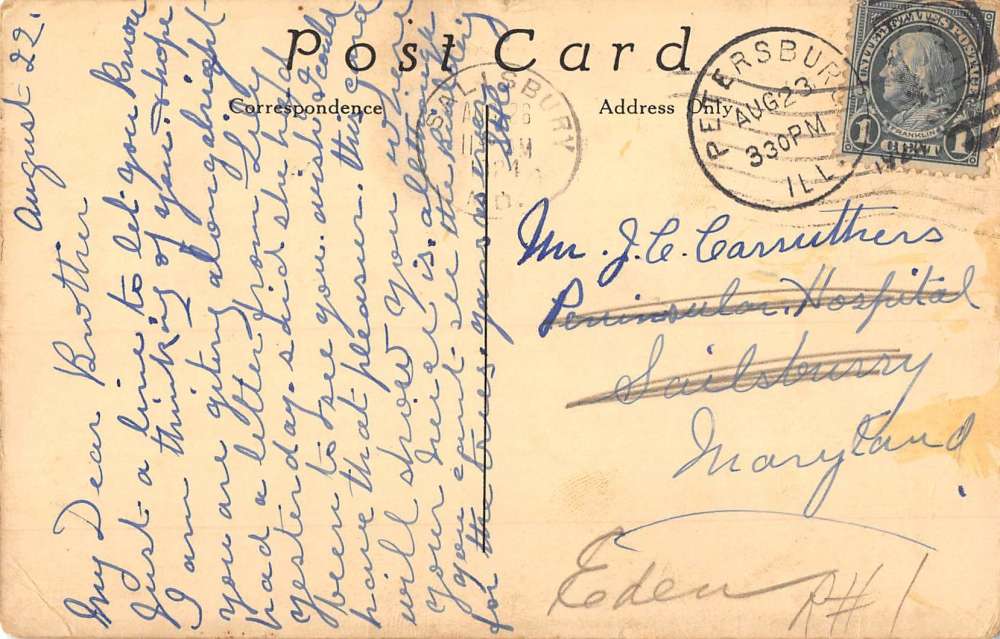 Post Card
Correspondence
Address Only
PETERSBURG
AUG 23
330PM
ILL.
UNITED STATES POSTAGE
FRANKLIN
1 CENT 1
SALISBURY
August 22.
My Dear Brother
Just a line to let you know
I am thinking of you. & hope
you are getting along alright
had a letter from Lily
yesterday. said she had
been to see you. wish I could
have that pleasure. this card
will show you where
your niece is. although
you cant see the building
for the trees. yours
Mr. J. C. Carruthers
Peninsular Hospital
Sailsburry
Maryland
Eden
R# 1